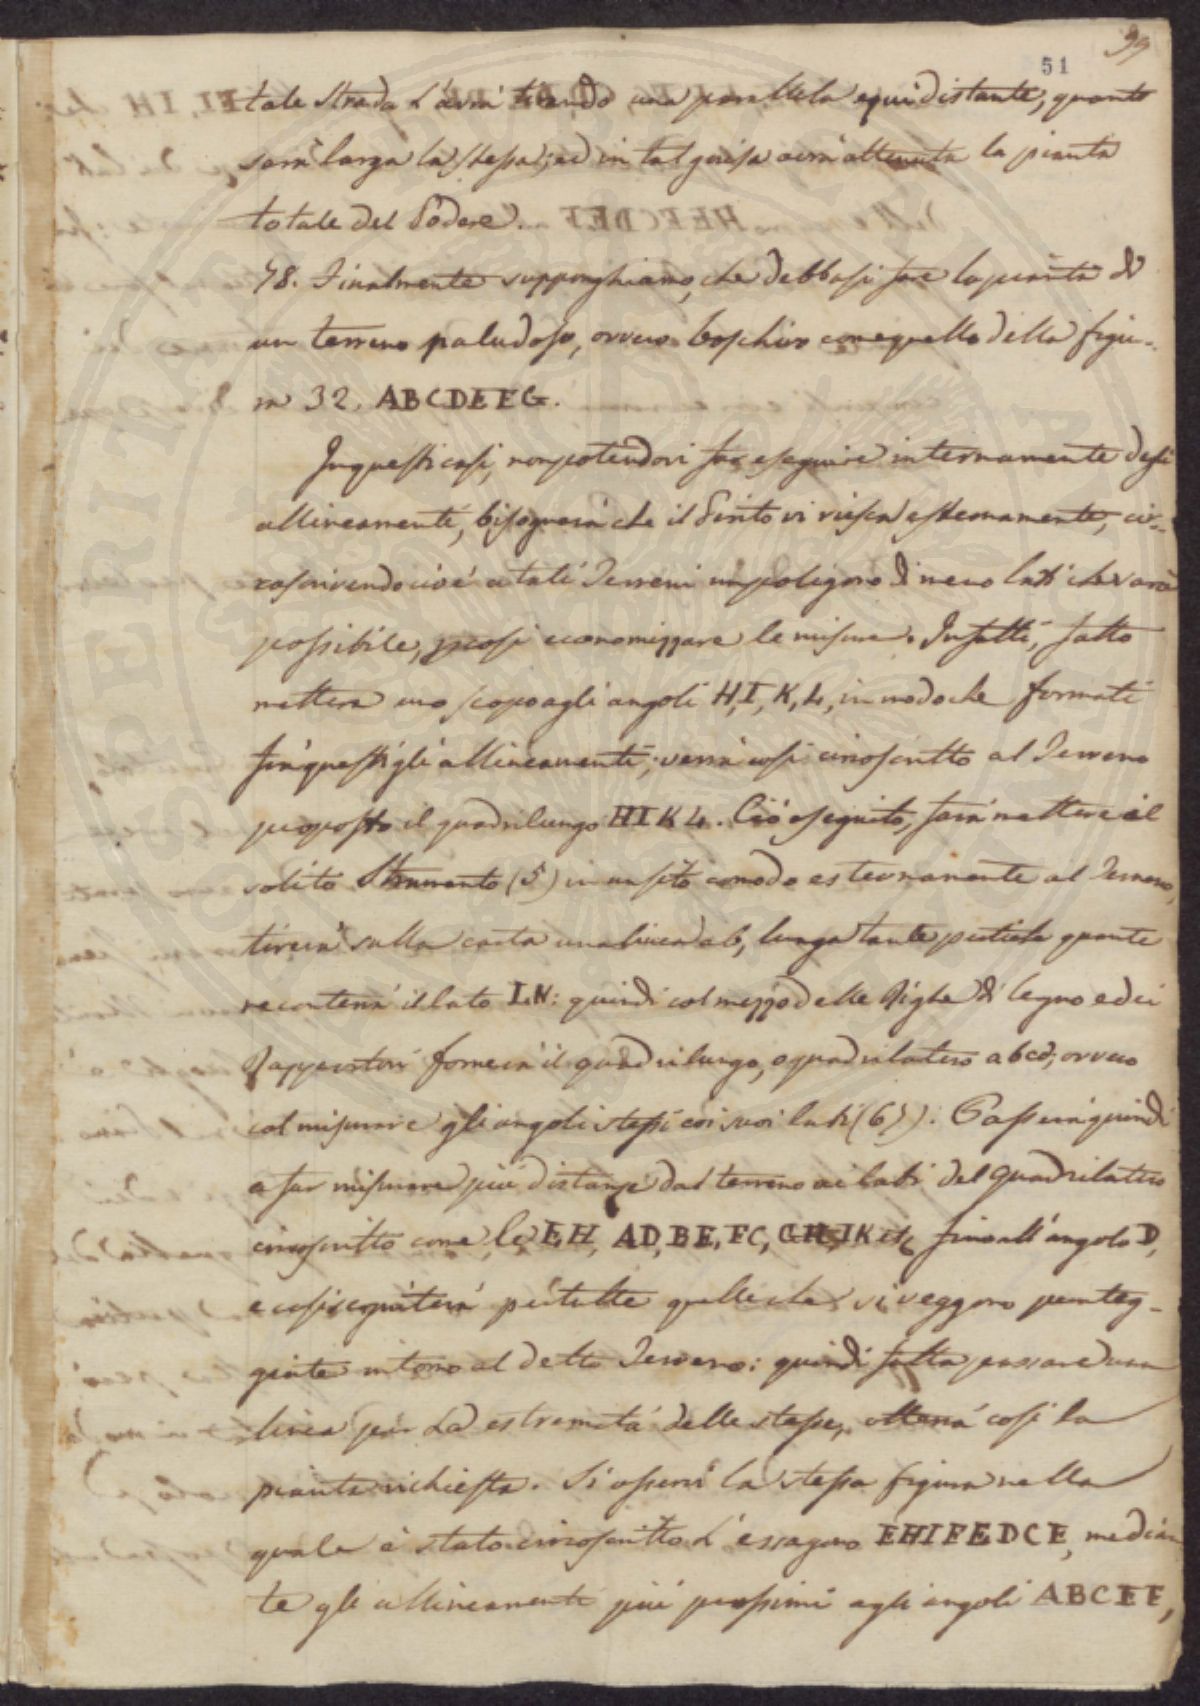 99
51
tale strada l'avrà tirando una parallela equidistante, quanto
sarà larga la stessa; ed in tal guisa avrà ottenuta la pianta
totale del Podere.
78. Finalmente supponghiamo, che debbasi fare la pianta di
un terreno paludoso, ovvero boschivo come quello della figu-
ra 32. ABCDEFG.
In questi casi, non potendovi far eseguire internamente degli
allineamenti, bisognerà che il Perito vi riesca esternamente, cir-
coscrivendo cioè a tali Terreni un poligono di meno lati che sarà
possibile, p così economizzare le misure. Infatti, fatto
mettere uno scopo agli angoli H, I, K, L, in modo che formati
fra questi gli allineamenti, verrà così circoscritto al Terreno
proposto il quadrilungo HIKL. Ciò eseguito, farà mettere il
solito Strumento (5) in un sito comodo esternamente al Terreno,
tirerà sulla carta una linea ab, lunga tante pertiche quante
ne conterrà il lato LK: quindi col mezzo delle Righe di legno ed ei
Rapportatori formerà il quadrilungo, o quadrilatero abcd, ovvero
col misurare gli angoli stessi coi suoi lati (67). Passerà quindi
a far misurare più distanze dal terreno ai lati del quadrilatero
circoscritto come le EH, AD, BE, FC, GH, IK etc fino all'angolo D,
e così seguiterà per tutte quelle che si veggono punteg-
giate intorno al detto Terreno: quindi fatta passare una
linea per le estremità delle stesse, otterrà così la
pianta richiesta. Si osservi la stessa figura nella
quale è stato circoscritto l'essagono EHIFEDCE, median
te gli allineamenti più prossimi agli angoli ABCEF,